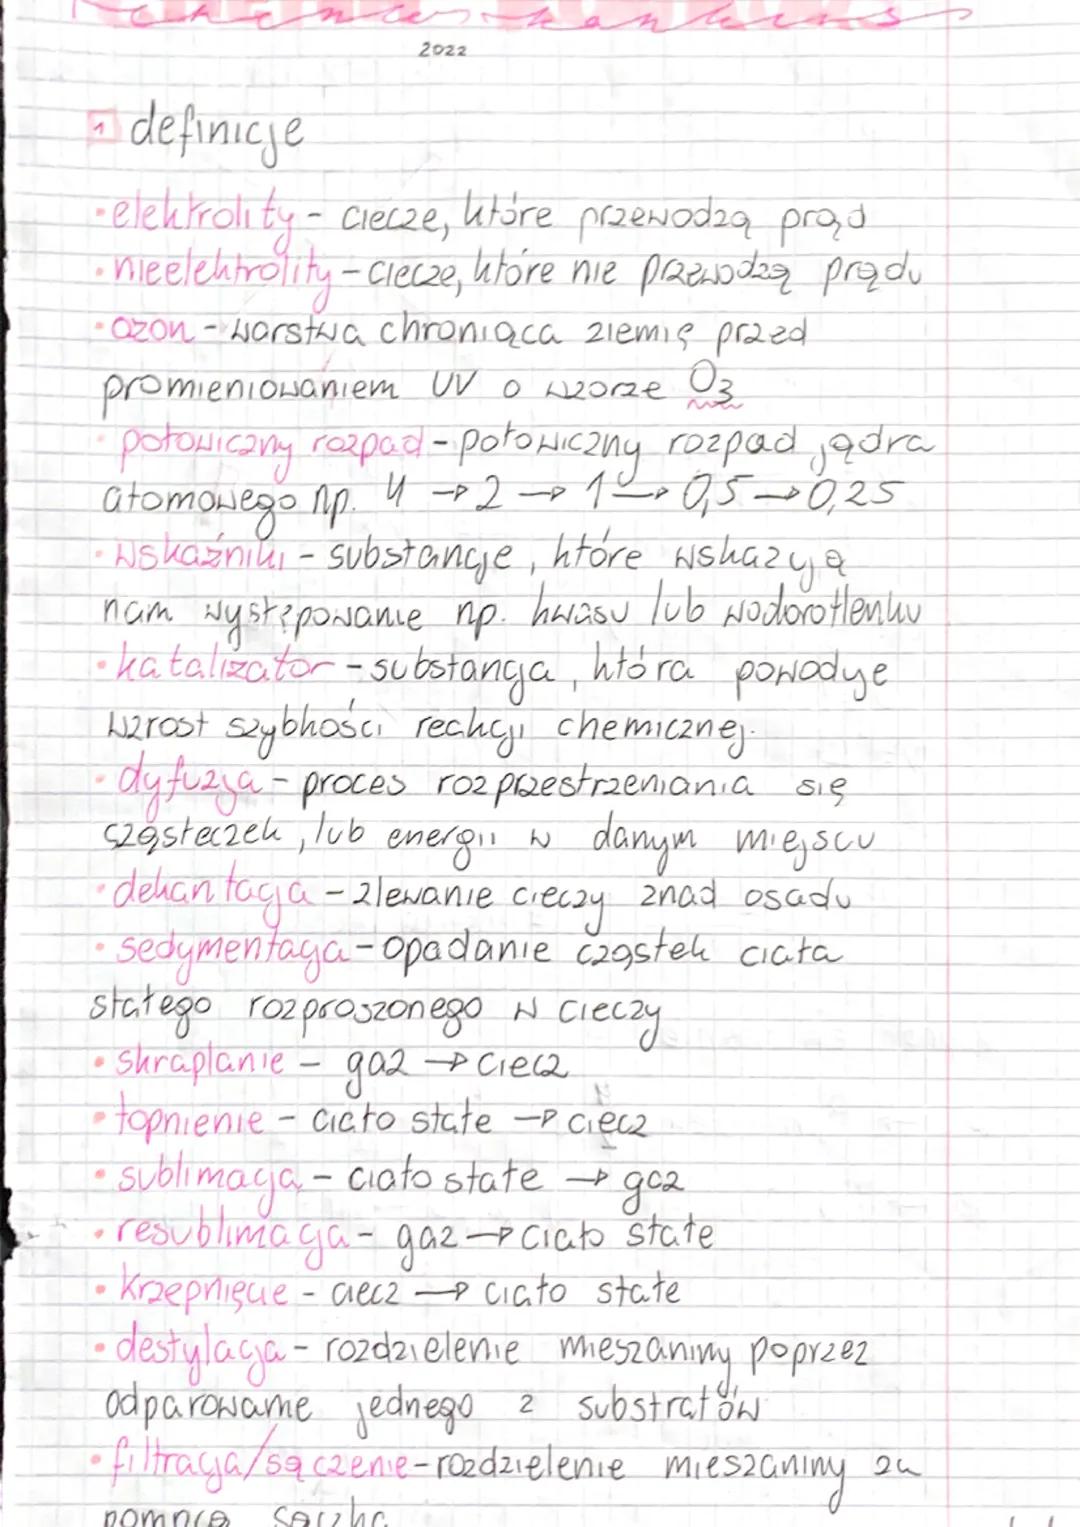 2022
1 definicje
• elektrolity - ciecze, które przewodzą prąd
• nieelektrolity - ciecze, które nie przewodzą prądu
• ozon - warstwa chroniąca ziemię przed
promieniowaniem UV o wzorze O₃
• połowiczny rozpad - połowiczny rozpad jądra
atomowego np. 4 → 2 → 1 → 0,5 → 0,25
• wskaźniki - substancje, które wskazują
nam występowanie np. kwasu lub wodorotlenku
• katalizator - substancja, która powoduje
wzrost szybkości reakcji chemicznej.
• dyfuzja - proces rozprzestrzeniania się
cząsteczek, lub energii w danym miejscu
• dekantacja - zlewanie cieczy znad osadu
• sedymentacja - opadanie cząstek ciała
stałego rozproszonego w cieczy
• skraplanie - gaz → ciecz
• topnienie - ciało stałe → ciecz
• sublimacja - ciało stałe → gaz
• resublimacja - gaz → ciało stałe
• krzepnięcie - ciecz → ciało stałe
• destylacja - rozdzielenie mieszaniny poprzez
odparowanie jednego z substratów
• filtracja/sączenie - rozdzielenie mieszaniny za
pomocą sączka